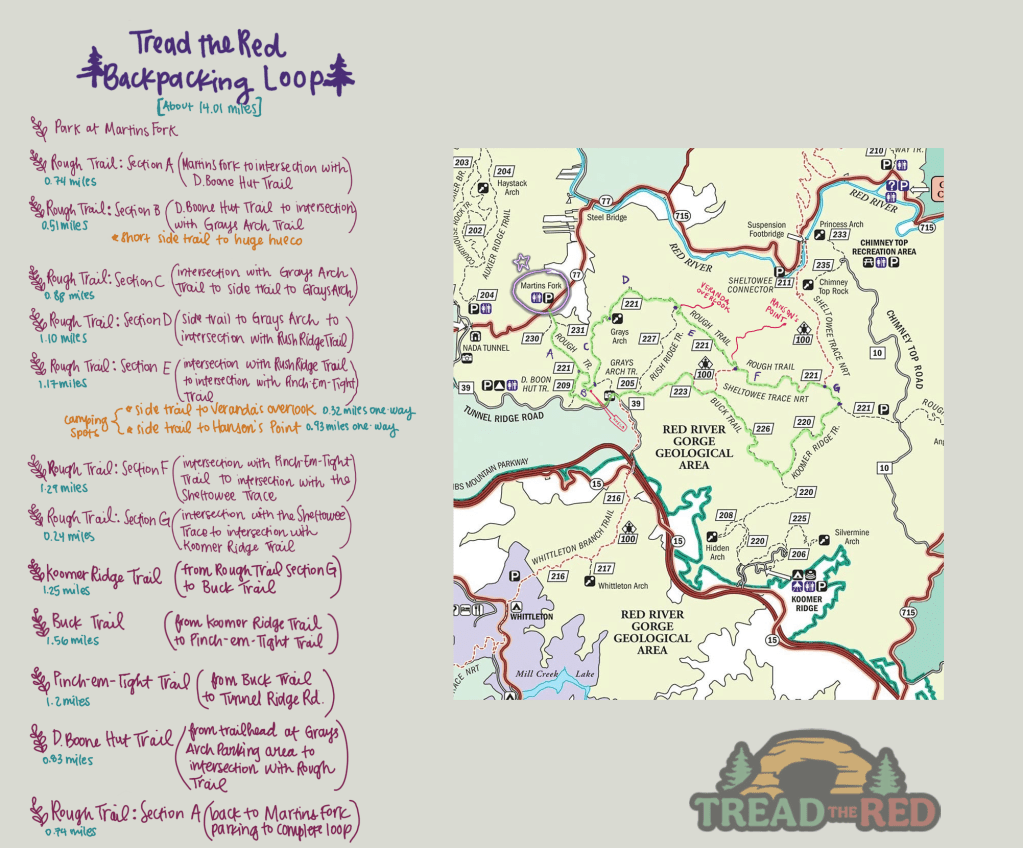 Tread the Red
Backpacking Loop
[About 14.01 miles]
Park at Martins Fork
Rough Trail: Section A (Martins Fork to intersection with
D. Boone Hut Trail)
0.74 miles
Rough Trail: Section B (D. Boone Hut Trail to intersection
with Grays Arch Trail)
0.51 miles
*short side trail to huge hueco
Rough Trail: Section C (intersection with Grays Arch
Trail to side trail to Grays Arch)
0.88 miles
Rough Trail: Section D (side trail to Grays Arch to
intersection with Rush Ridge Trail)
1.10 miles
Rough Trail: Section E (intersection with Rush Ridge Trail
to intersection with Pinch-Em-Tight
Trail)
1.17 miles
camping
spots
*side trail to Veranda's overlook 0.32 miles one-way
*side trail to Hanson's Point 0.93 miles one-way
Rough Trail: Section F (intersection with Pinch-Em-Tight
Trail to intersection with the
Sheltowee Trace)
1.29 miles
Rough Trail: Section G (intersection with the Sheltowee
Trace to intersection with
Koomer Ridge Trail)
0.24 miles
Koomer Ridge Trail (from Rough Trail Section G
to Buck Trail)
1.25 miles
Buck Trail (from Koomer Ridge Trail
to Pinch-em-Tight Trail)
1.56 miles
Pinch-em-Tight Trail (from Buck Trail
to Tunnel Ridge Rd.)
1.2 miles
D. Boone Hut Trail (from trailhead at Grays
Arch Parking area to
intersection with Rough
Trail)
0.83 miles
Rough Trail: Section A (back to Martins Fork
parking to complete loop)
0.74 miles
203
204
Haystack
Arch
COURTHOUSE ROCK TR.
202
AUXIER RIDGE TRAIL
204
NADA TUNNEL
77
Steel Bridge
715
RED RIVER
77
Martins Fork
230
231
ROUGH TR.
A
C
B
D
221
Grays
Arch
VERANDA
OVERLOOK
HANSON'S
POINT
ROUGH TRAIL
E
221
227
RUSH RIDGE TR.
GRAYS
ARCH TR.
100
221
39
D. BOON
HUT TR.
209
205
TUNNEL RIDGE ROAD
39
223
BUCK TRAIL
F
ROUGH TRAIL
221
SHELTOWEE TRACE NRT
G
226
220
KOOMER RIDGE TR.
221
210
WAY TR.
RED RIVER
715
Suspension
Footbridge
Princess Arch
233
CHIMNEY TOP
RECREATION AREA
SHELTOWEE
CONNECTOR
211
235
Chimney
Top Rock
100
SHELTOWEE TRACE NRT
CHIMNEY TOP ROAD
10
10
RED RIVER
GORGE
GEOLOGICAL
AREA
BS MOUNTAIN PARKWAY
15
216
WHITTLETON BRANCH TRAIL
100
216
217
Whittleton Arch
WHITTLETON
15
220
208
225
Hidden
Arch
220
206
Silvermine
Arch
KOOMER
RIDGE
715
15
RED RIVER
GORGE
GEOLOGICAL
AREA
Mill Creek Lake
ACE NRT
TREAD THE RED